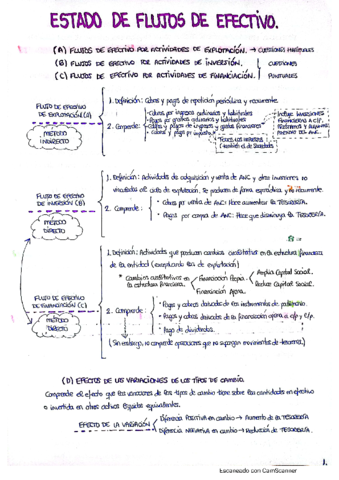 ESTADO DE FLUJOS DE EFECTIVO.
(A) FLUJOS DE EFECTIVO POR ACTIVIDADES DE EXPLOTACIÓN. → CUESTIONES
(B) FLUJOS DE EFECTIVO POR ACTIVIDADES DE INVERSIÓN. CUESTIONES
(C) FLUJOS DE EFECTIVO POR ACTIVIDADES DE FINANCIACIÓN. PUNTUALES
FLUJO DE EFECTIVO
DE EXPLOTACIÓN (A)
MÉTODO
INDIRECTO
1. Definición: Cobros y pagos de repetición periódica y recurrente.
2. Comprende:
Cobros por ingresos ordinarios y habituales
Pagos por gastos ordinarios y habituales
Cobros y pagos de ingresos y gastos financieros
Cobros y pagos por impuestos
Todos los
también el de Sociedades
Incluye INVERSIONES
FINANCIERAS A C/P,
FLUJO DE EFECTIVO
DE INVERSIÓN (B)
MÉTODO
DIRECTO
1. Definición: Actividades de adquisición y venta de ANC y otras inversiones no
vinculadas al ciclo de explotación. Se producen de forma esporádica y no recurrente.
2. Comprende:
· Cobros por venta de ANC: Hace aumentar la TESORERÍA.
· Pagos por compra de ANC: Hace que disminuya la TESORERÍA.
FLUJO DE EFECTIVO
DE FINANCIACIÓN (C)
MÉTODO
DIRECTO
1. Definición: Actividades que producen cambios cualitativos en la estructura financiera
de la entidad (exceptuando las de explotación)
* Cambios cualitativos en
la estructura financiera.
Financiación Propia
Ampliar Capital Social.
Reducir Capital Social.
Financiación Ajena.
2. Comprende:
· Pagos y cobros derivados de los instrumentos de patrimonio.
· Pagos y cobros derivados de la financiación ajena a c/p y l/p.
· Pago de dividendos.
(Sin embargo, no comprende operaciones que no supongan movimientos de tesorería.)
(D) EFECTOS DE LAS VARIACIONES DE LOS TIPOS DE CAMBIO.
Comprende el efecto que las variaciones de los tipos de cambio tiene sobre las cantidades en efectivo
o invertida en otros activos líquidos equivalentes.
EFECTO DE LA VARIACIÓN
Diferencia POSITIVA en cambio → Aumento de la TESORERÍA
Diferencia NEGATIVA en cambio → Reducción de TESORERÍA.
1.
Escaneado con CamScanner